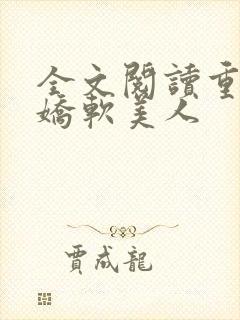 全文閱讀重
嬌軟美人
賈成龍